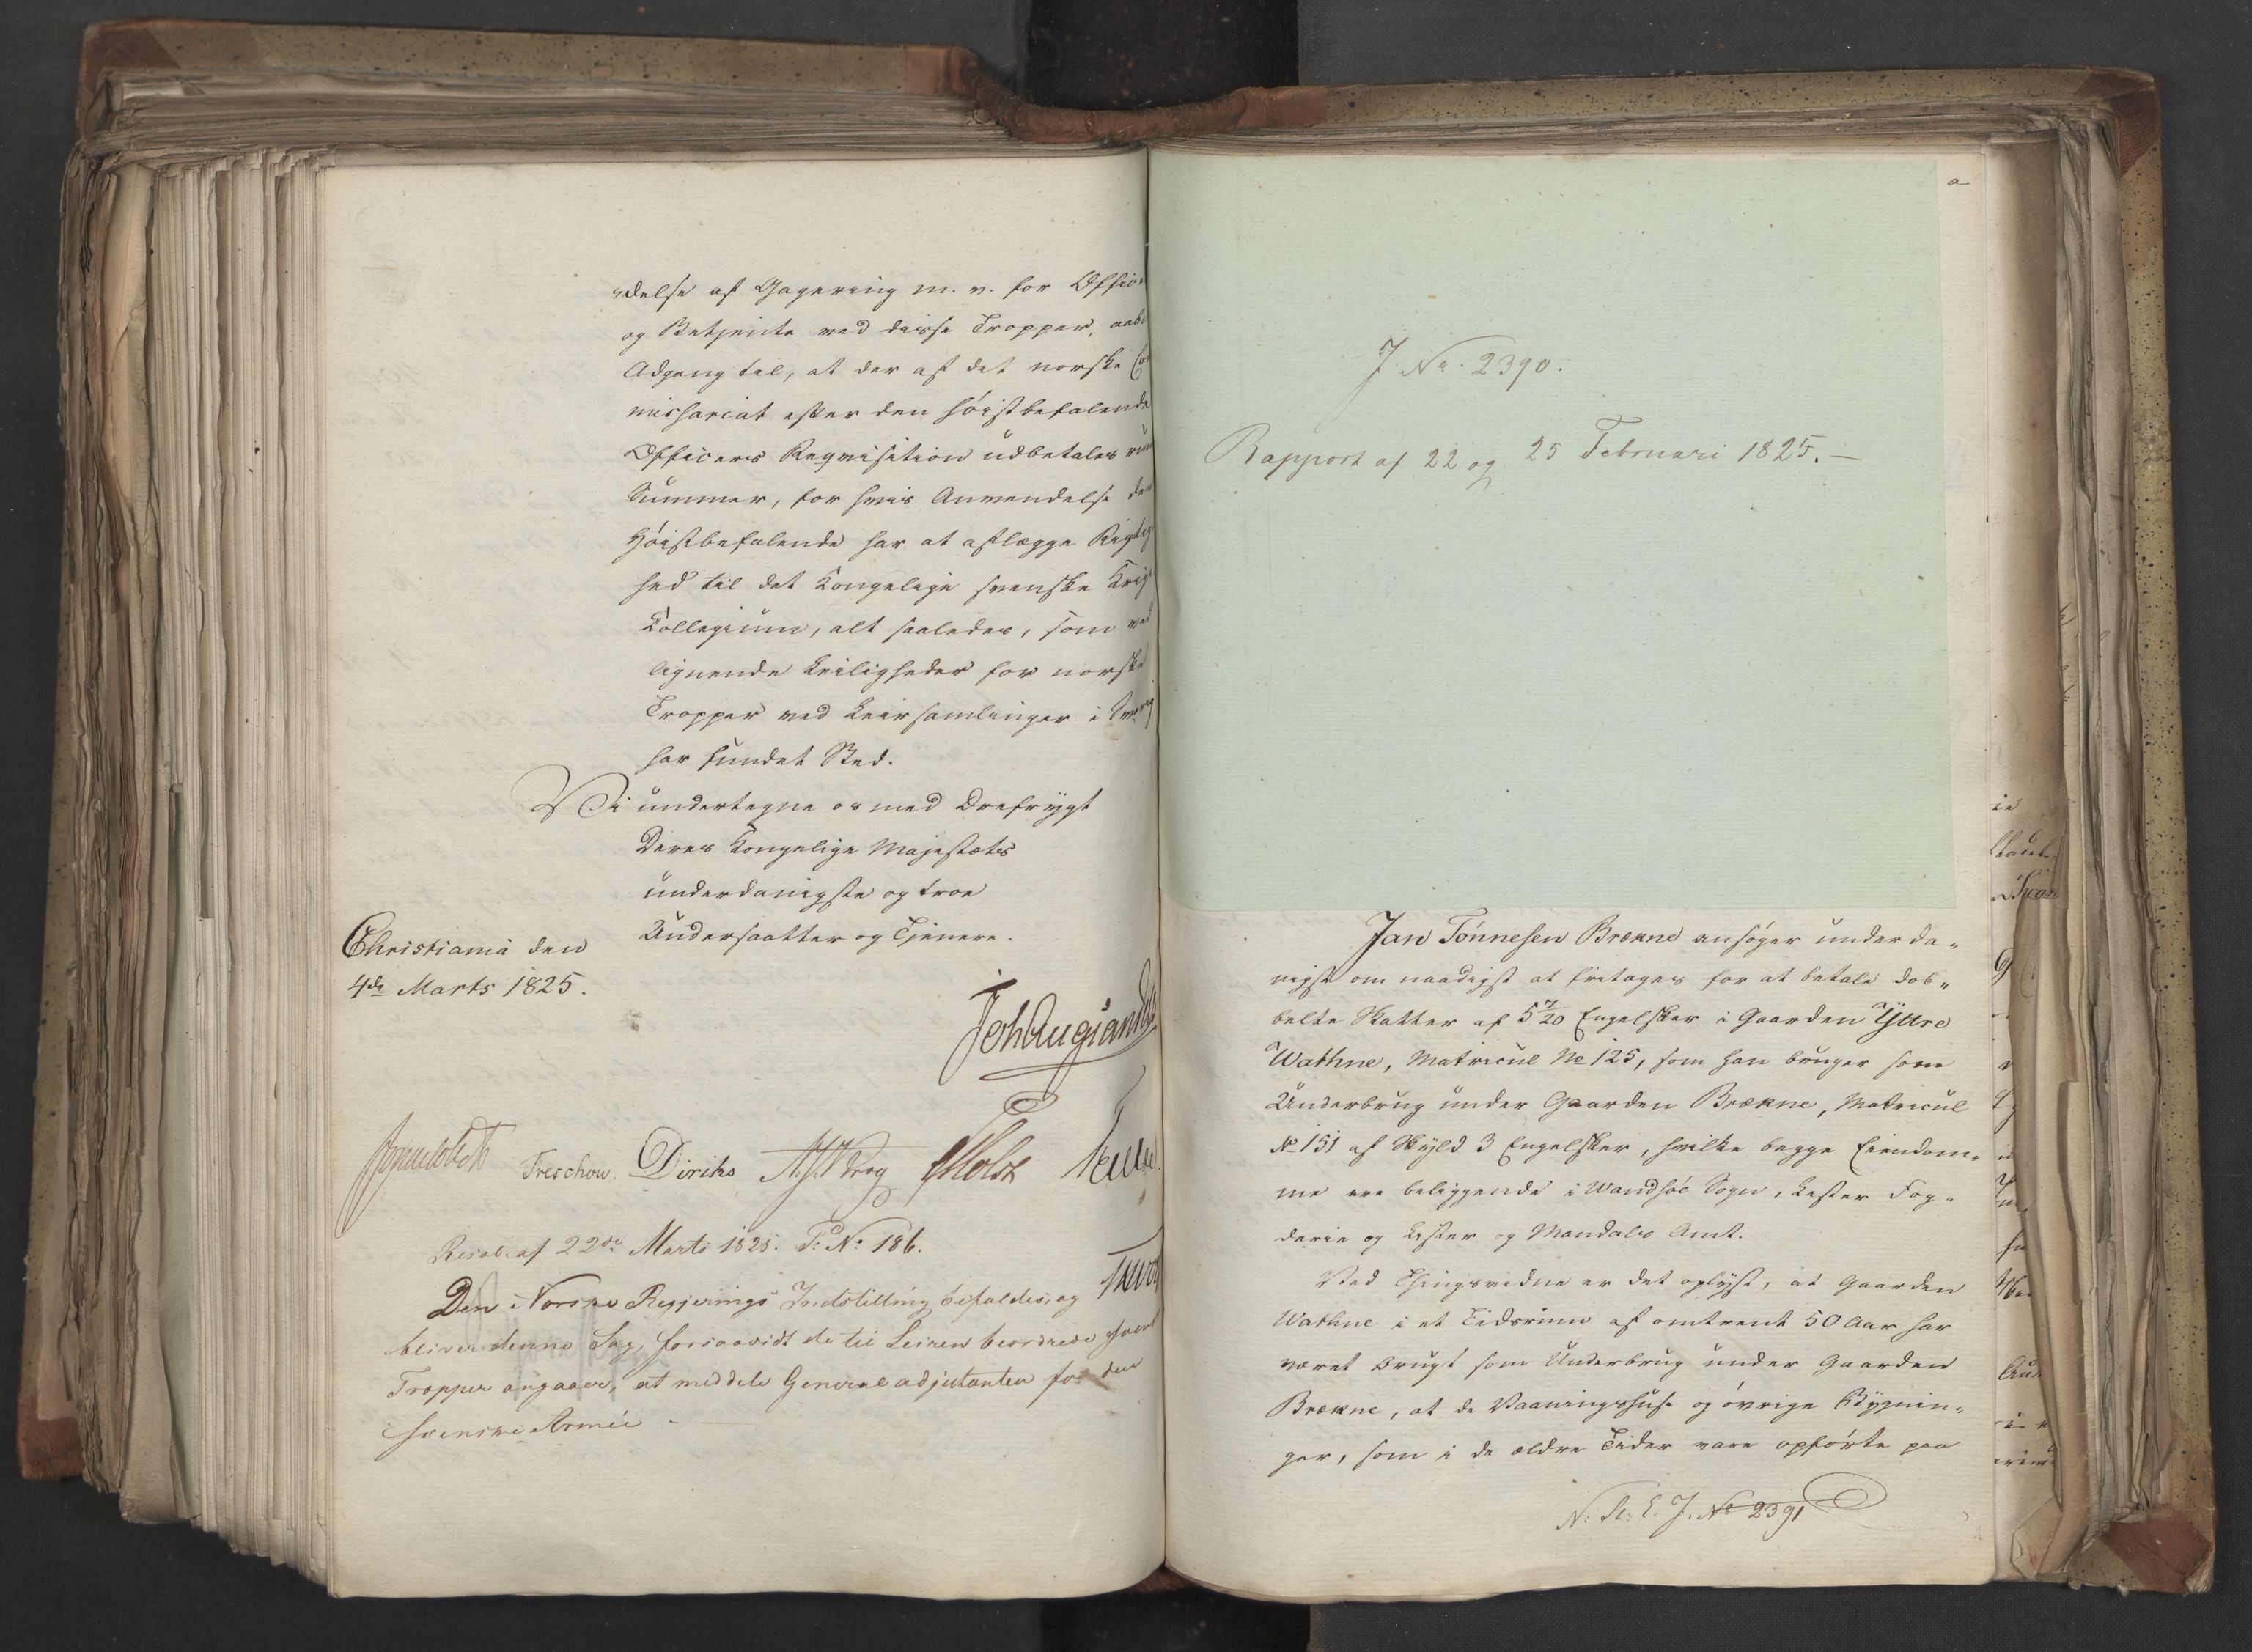 delse af Gagering m. v. for Offic
og Betjente ved disse Tropper, aab
Adgang til, at der af det norske Co
missariat efter den høistbefalende
Officers Reqvisition udbetales
Summer, for hvis Anvendelse den
Høistbefalende har at aflægge Rigtig
hed til det Kongelige svenske Krigs
Collegium, alt saaledes, som ved
lignende Leiligheder for norske
Tropper ved Leirsamlinger i Sverig
har fundet Sted.
Vi undertegne os med Ærefrygt
Deres Kongelige Majestæts
underdanigste og troe
Undersaatter og Tjenere.
Christiania den
4de Marts 1825.
Joh Aug Sandels
Sommelsedt Treschow. Diriks Holst
Resol. af 22de Marts 1825. P: N: 186.
Den Norske Regjerings Indstilling bifaldes, og
bliver denne Sag, forsaavidt de til Leiren beordrede svenske
Tropper angaaer, at meddele General adjutanten for den
svenske Armée.
a
J. No. 2390.
Rapport af 22 og 25 Februari 1825. —
Jan Tönnesen Brækne ansøger underda„
nigst om naadigst at fritages for at betale dob„
belte Skatter af 5 7/20 Engelsker i Gaarden Yttre
Wathne, Matricul No 125, som han bruger som
Underbrug under Gaarden Brækne, Matricul
No 151 af Skyld 3 Engelsker, hvilke begge Eiendom„
me ere beliggende i Wandsöe Sogn, Lister Fog„
derie og Lister og Mandals Amt.
Ved Thingsvidne er det oplyst, at Gaarden
Wathne i et Tidsrum af omtrent 50 Aar har
været brugt som Underbrug under Gaarden
Brækne, at de Vaaningshuse og øvrige Bygnin„
ger, som i de ældre Tider vare opførte paa
N: R: E. J. No 2391